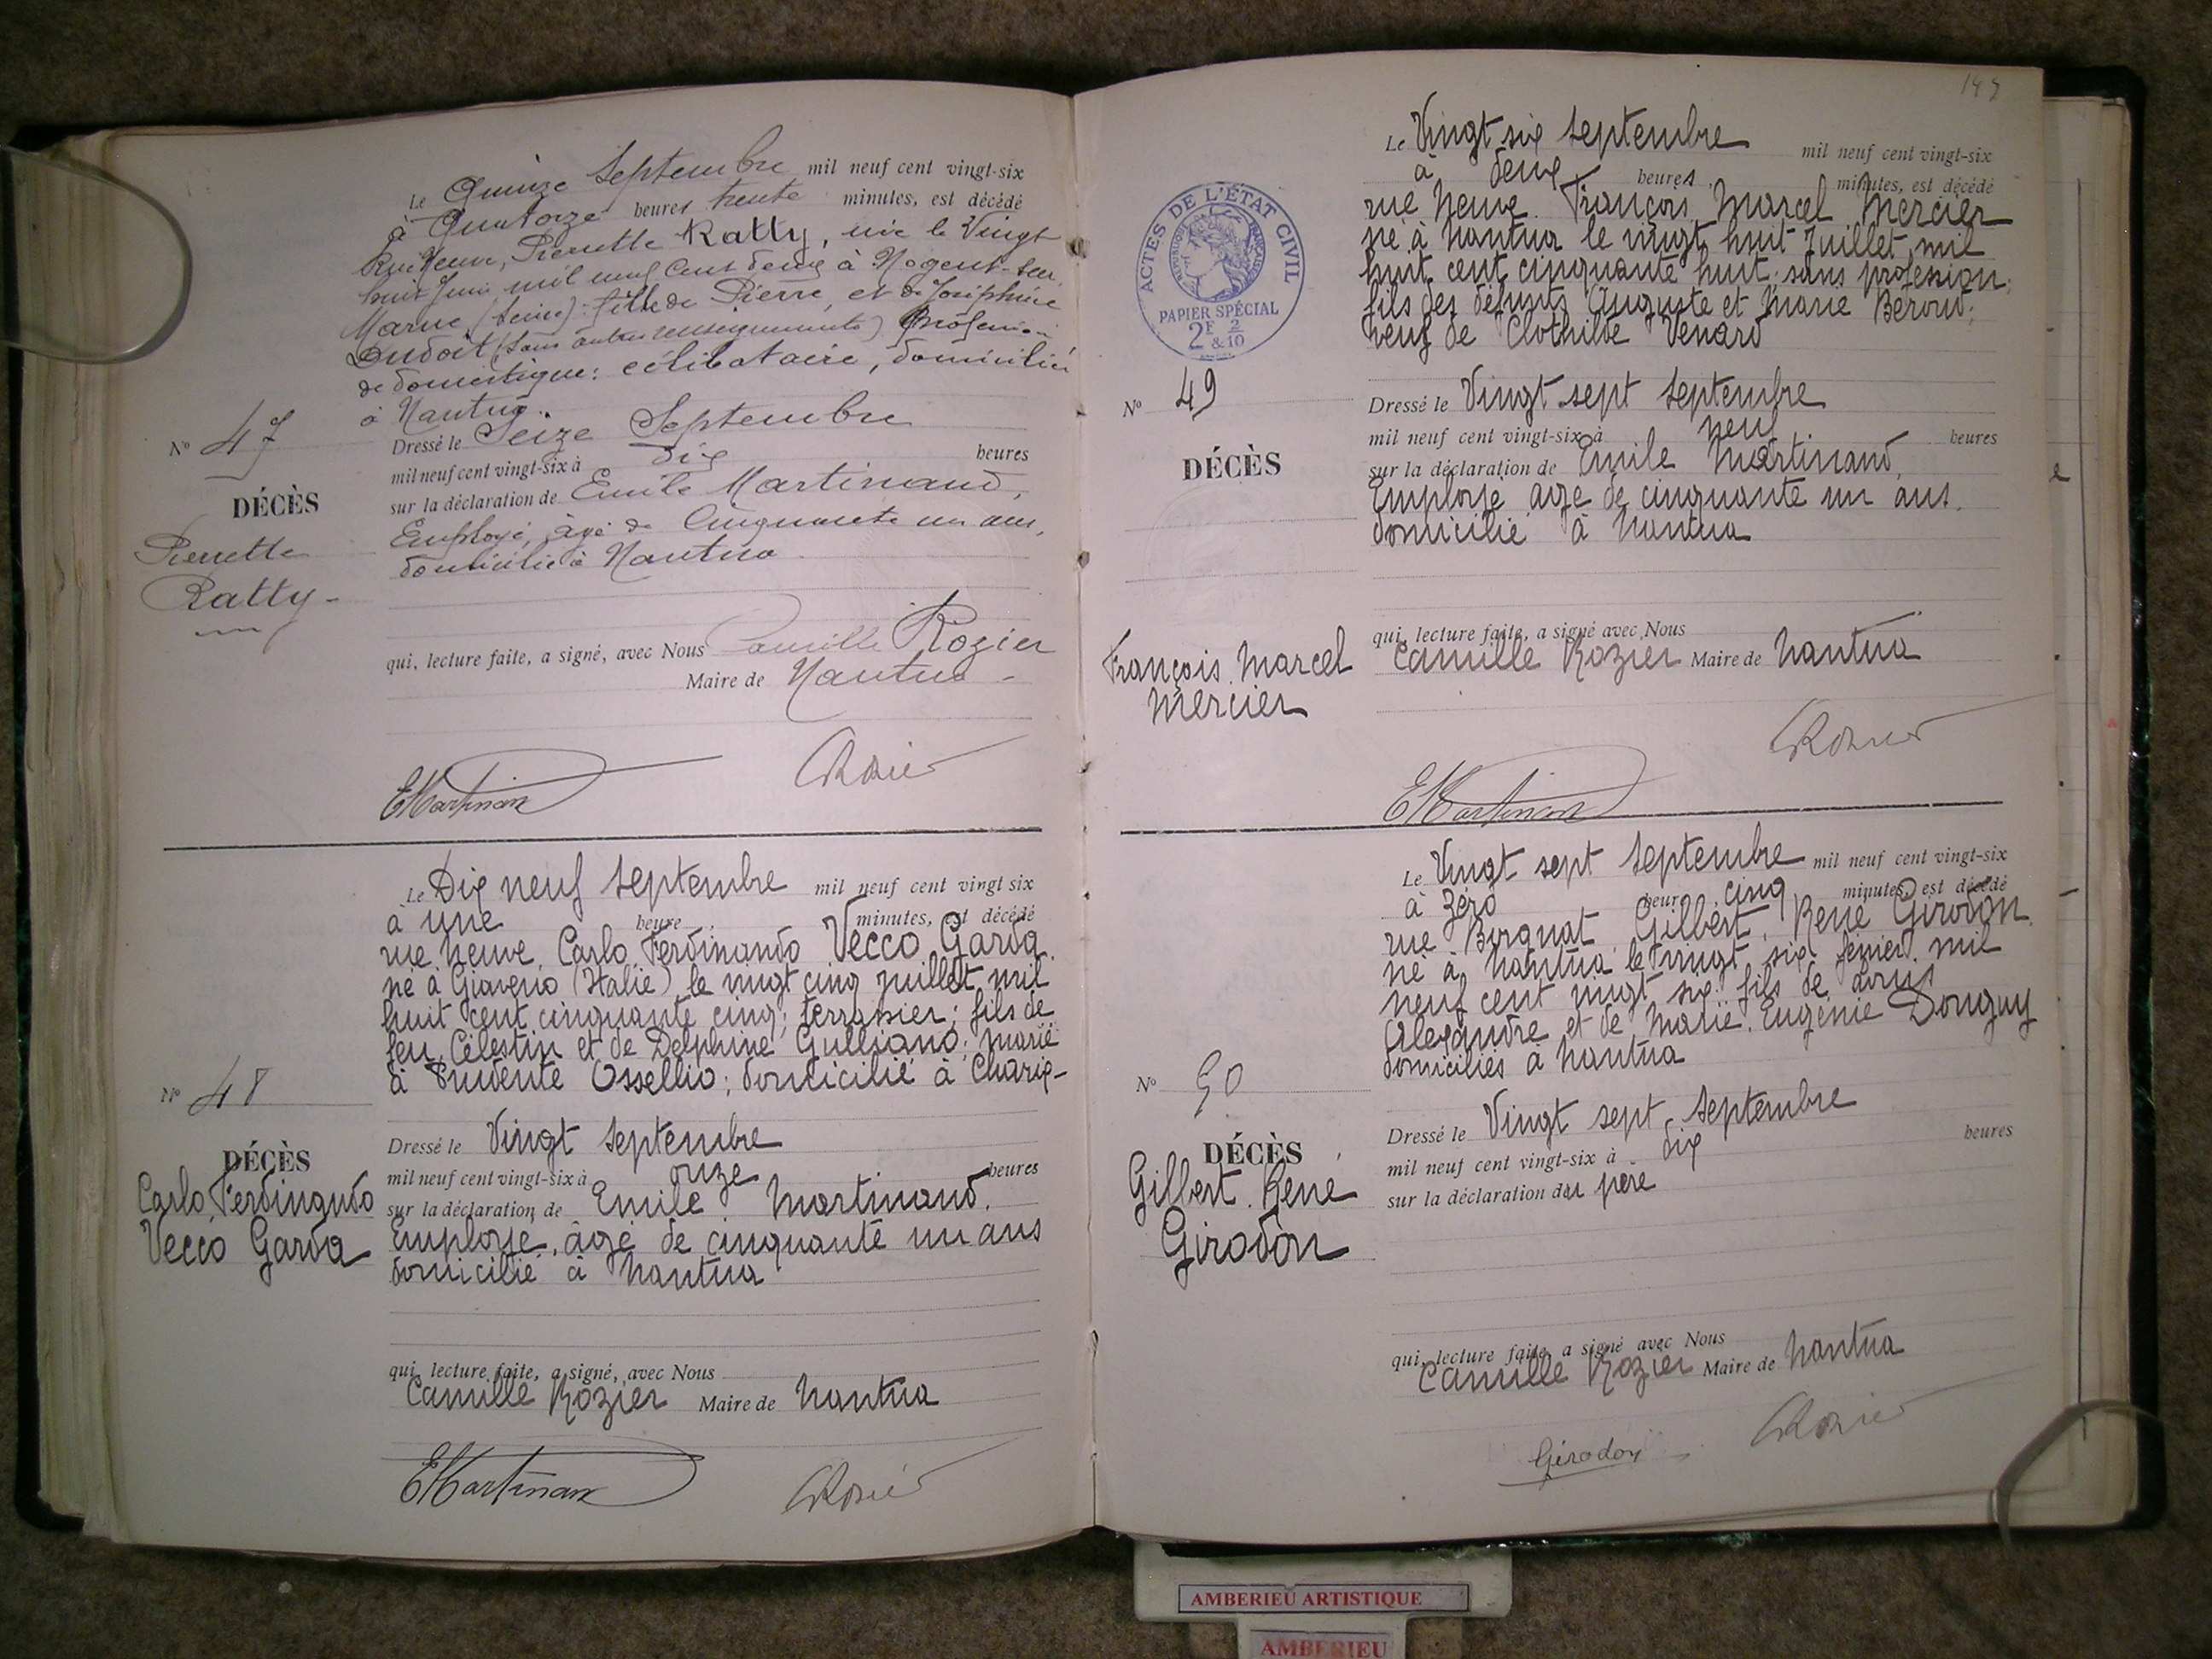 Le Quinze Septembre mil neuf cent vingt-six
à Quatorze heures trente minutes, est décédé
Rue Neuve, Pierrette Ratty, née le Vingt
huit Juin mil neuf cent deux à Nogent-sur
Marne (Seine): fille de Pierre, et de Joséphine
Dudoit (sans autres renseignements) Profession
de domestique: célibataire, domicilié
à Nantua.
N° 47
DÉCÈS
Pierrette
Ratty
Dressé le Seize Septembre
mil neuf cent vingt-six à dix heures
sur la déclaration de Emile Martinand,
Employé, âgé de Cinquante un ans,
domicilié à Nantua
qui, lecture faite, a signé, avec Nous Camille Rozier
Maire de Nantua
EMartinand CRozier
Le Dix neuf Septembre mil neuf cent vingt six
à une heure minutes, est décédé
rue Neuve, Carlo Ferdinando Vecco Garda
né à Giaveno (Italie) le vingt cinq juillet mil
huit cent cinquante cinq; terrassier; fils de
feu Célestin et de Delphine Gulliano; marié
à Prudente Ossellio; domicilié à Charix
N° 48
DÉCÈS
Carlo Ferdinando
Vecco Garda
Dressé le Vingt Septembre
mil neuf cent vingt-six à onze heures
sur la déclaration de Emile Martinand.
Employé, âgé de cinquante un ans
domicilié à Nantua
qui, lecture faite, a signé, avec Nous
Camille Rozier Maire de Nantua
EMartinand CRozier
ACTES DE L'ÉTAT CIVIL
RÉPUBLIQUE FRANÇAISE
PAPIER SPÉCIAL
2F & 2/10
Le Vingt six Septembre mil neuf cent vingt-six
à deux heures minutes, est décédé
rue Neuve François Marcel Mercier
né à Nantua le vingt huit Juillet mil
huit cent cinquante huit; sans profession;
fils des défunts Auguste et Marie Beroud;
veuf de Clothilde Venard
N° 49
DÉCÈS
François Marcel
Mercier
Dressé le Vingt sept Septembre
mil neuf cent vingt-six à neuf heures
sur la déclaration de Emile Martinand,
Employé âgé de cinquante un ans.
domicilié à Nantua
qui, lecture faite, a signé avec Nous
Camille Rozier Maire de Nantua
CRozier
EMartinand
Le Vingt sept Septembre mil neuf cent vingt-six
à zéro heure cinq minutes, est décédé
rue Borgnat, Gilbert, René Girodon
né à Nantua le vingt six février mil
neuf cent vingt six fils de Louis
Alexandre et de Marie Eugénie Donguy
domiciliés à Nantua
N° 50
DÉCÈS
Gilbert René
Girodon
Dressé le Vingt sept Septembre
mil neuf cent vingt-six à dix heures
sur la déclaration du père
qui, lecture faite, a signé avec Nous
Camille Rozier Maire de Nantua
Girodon CRozier
AMBERIEU ARTISTIQUE
AMBERIEU